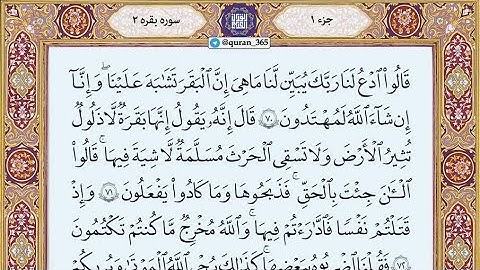 جزء ۱
@quran_365
سوره بقره ۲
قَالُوا۟ ٱدْعُ لَنَا رَبَّكَ يُبَيِّن لَّنَا مَا هِىَ إِنَّ ٱلْبَقَرَ تَشَـٰبَهَ عَلَيْنَا وَإِنَّآ
إِن شَآءَ ٱللَّهُ لَمُهْتَدُونَ ۝٧٠ قَالَ إِنَّهُۥ يَقُولُ إِنَّهَا بَقَرَةٌ لَّا ذَلُولٌ
تُثِيرُ ٱلْأَرْضَ وَلَا تَسْقِى ٱلْحَرْثَ مُسَلَّمَةٌ لَّا شِيَةَ فِيهَا ۚ قَالُوا۟
ٱلْـَٔـٰنَ جِئْتَ بِٱلْحَقِّ ۚ فَذَبَحُوهَا وَمَا كَادُوا۟ يَفْعَلُونَ ۝٧١ وَإِذْ
قَتَلْتُمْ نَفْسًا فَٱدَّٰرَْٰٔتُمْ فِيهَا ۖ وَٱللَّهُ مُخْرِجٌ مَّا كُنتُمْ تَكْتُمُونَ
۝٧٢ فَقُلْنَا ٱضْرِبُوهُ بِبَعْضِهَا ۚ كَذَٰلِكَ يُحْىِ ٱللَّهُ ٱلْمَوْتَىٰ وَيُرِيكُمْ